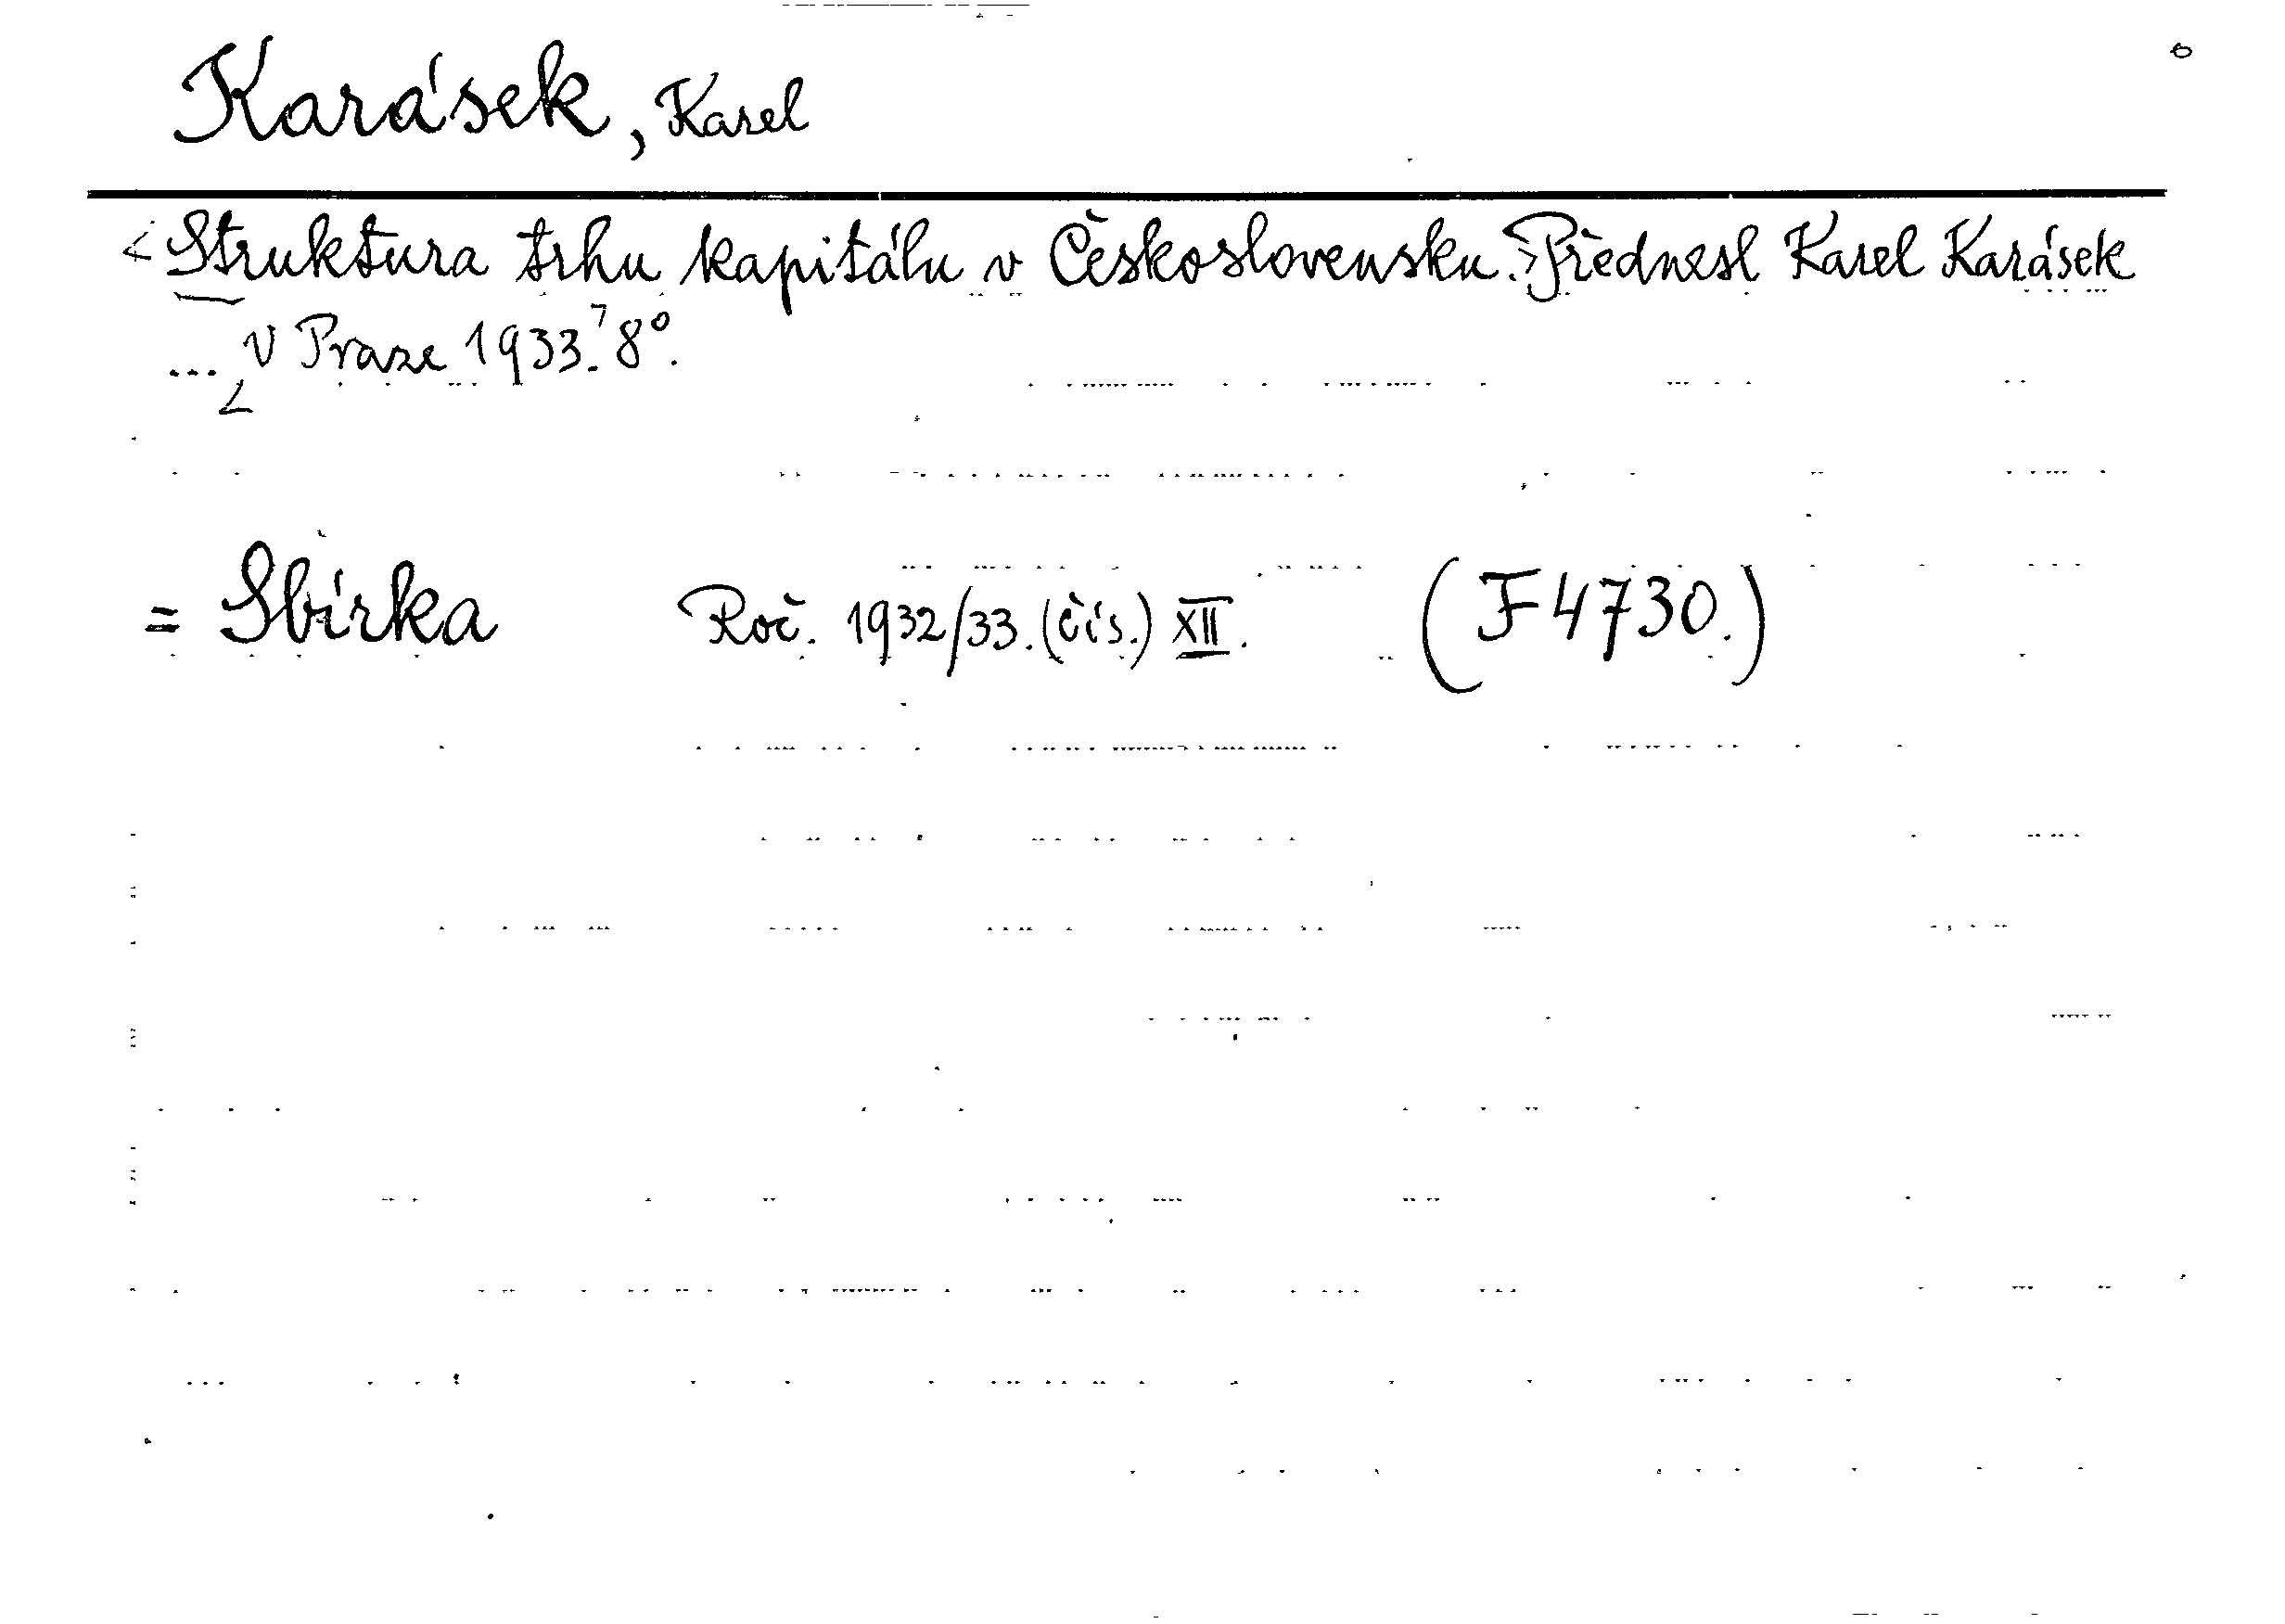 Karásek, Karel
<Struktura trhu kapitálu v Československu.> Přednesl Karel Karásek
... v Praze 1933. 8°.
= Sbírka Roč. 1932/33. (čís.) XII. (F 4730.)